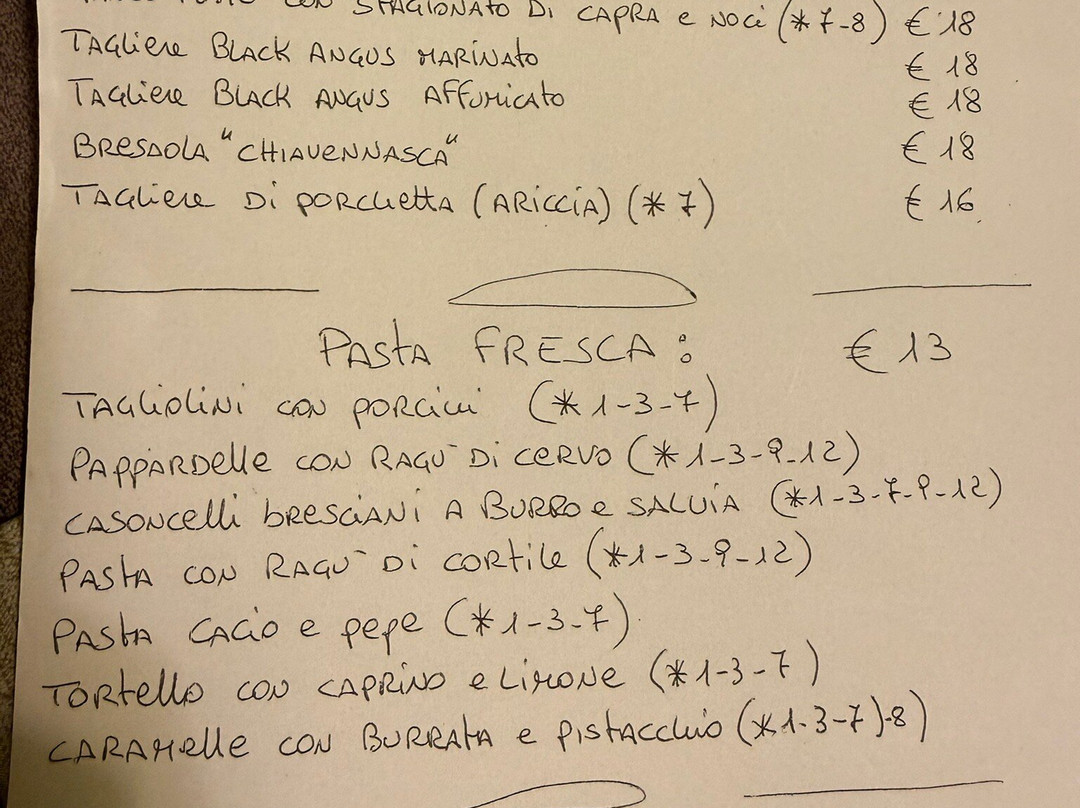 CON STAGIONATO DI CAPRA e NOCi (*7-8) € 18
TAGLiere BLACK ANGUS MARINATO € 18
TAGLiere BLACK ANGUS AFFUMICATO € 18
BRESAOLA "CHIAVENNASCA" € 18
TAGLiere Di PORCHETTA (ARICCIA) (*7) € 16
PASTA FRESCA: € 13
TAGLIOLINI CON PORCINI (*1-3-7)
PAPPARDELLE CON RAGU` DI CERVO (*1-3-9-12)
CASONCELLI BRESCIANI A BURRO e SALVIA (*1-3-7-9-12)
PASTA CON RAGU` Di CORTILE (*1-3-9-12)
PASTA CACIO e pepe (*1-3-7)
TORTELLO CON CAPRINO e LIMONE (*1-3-7)
CARAMELLE CON BURRATA e PISTACCHIO (*1-3-7)-8)